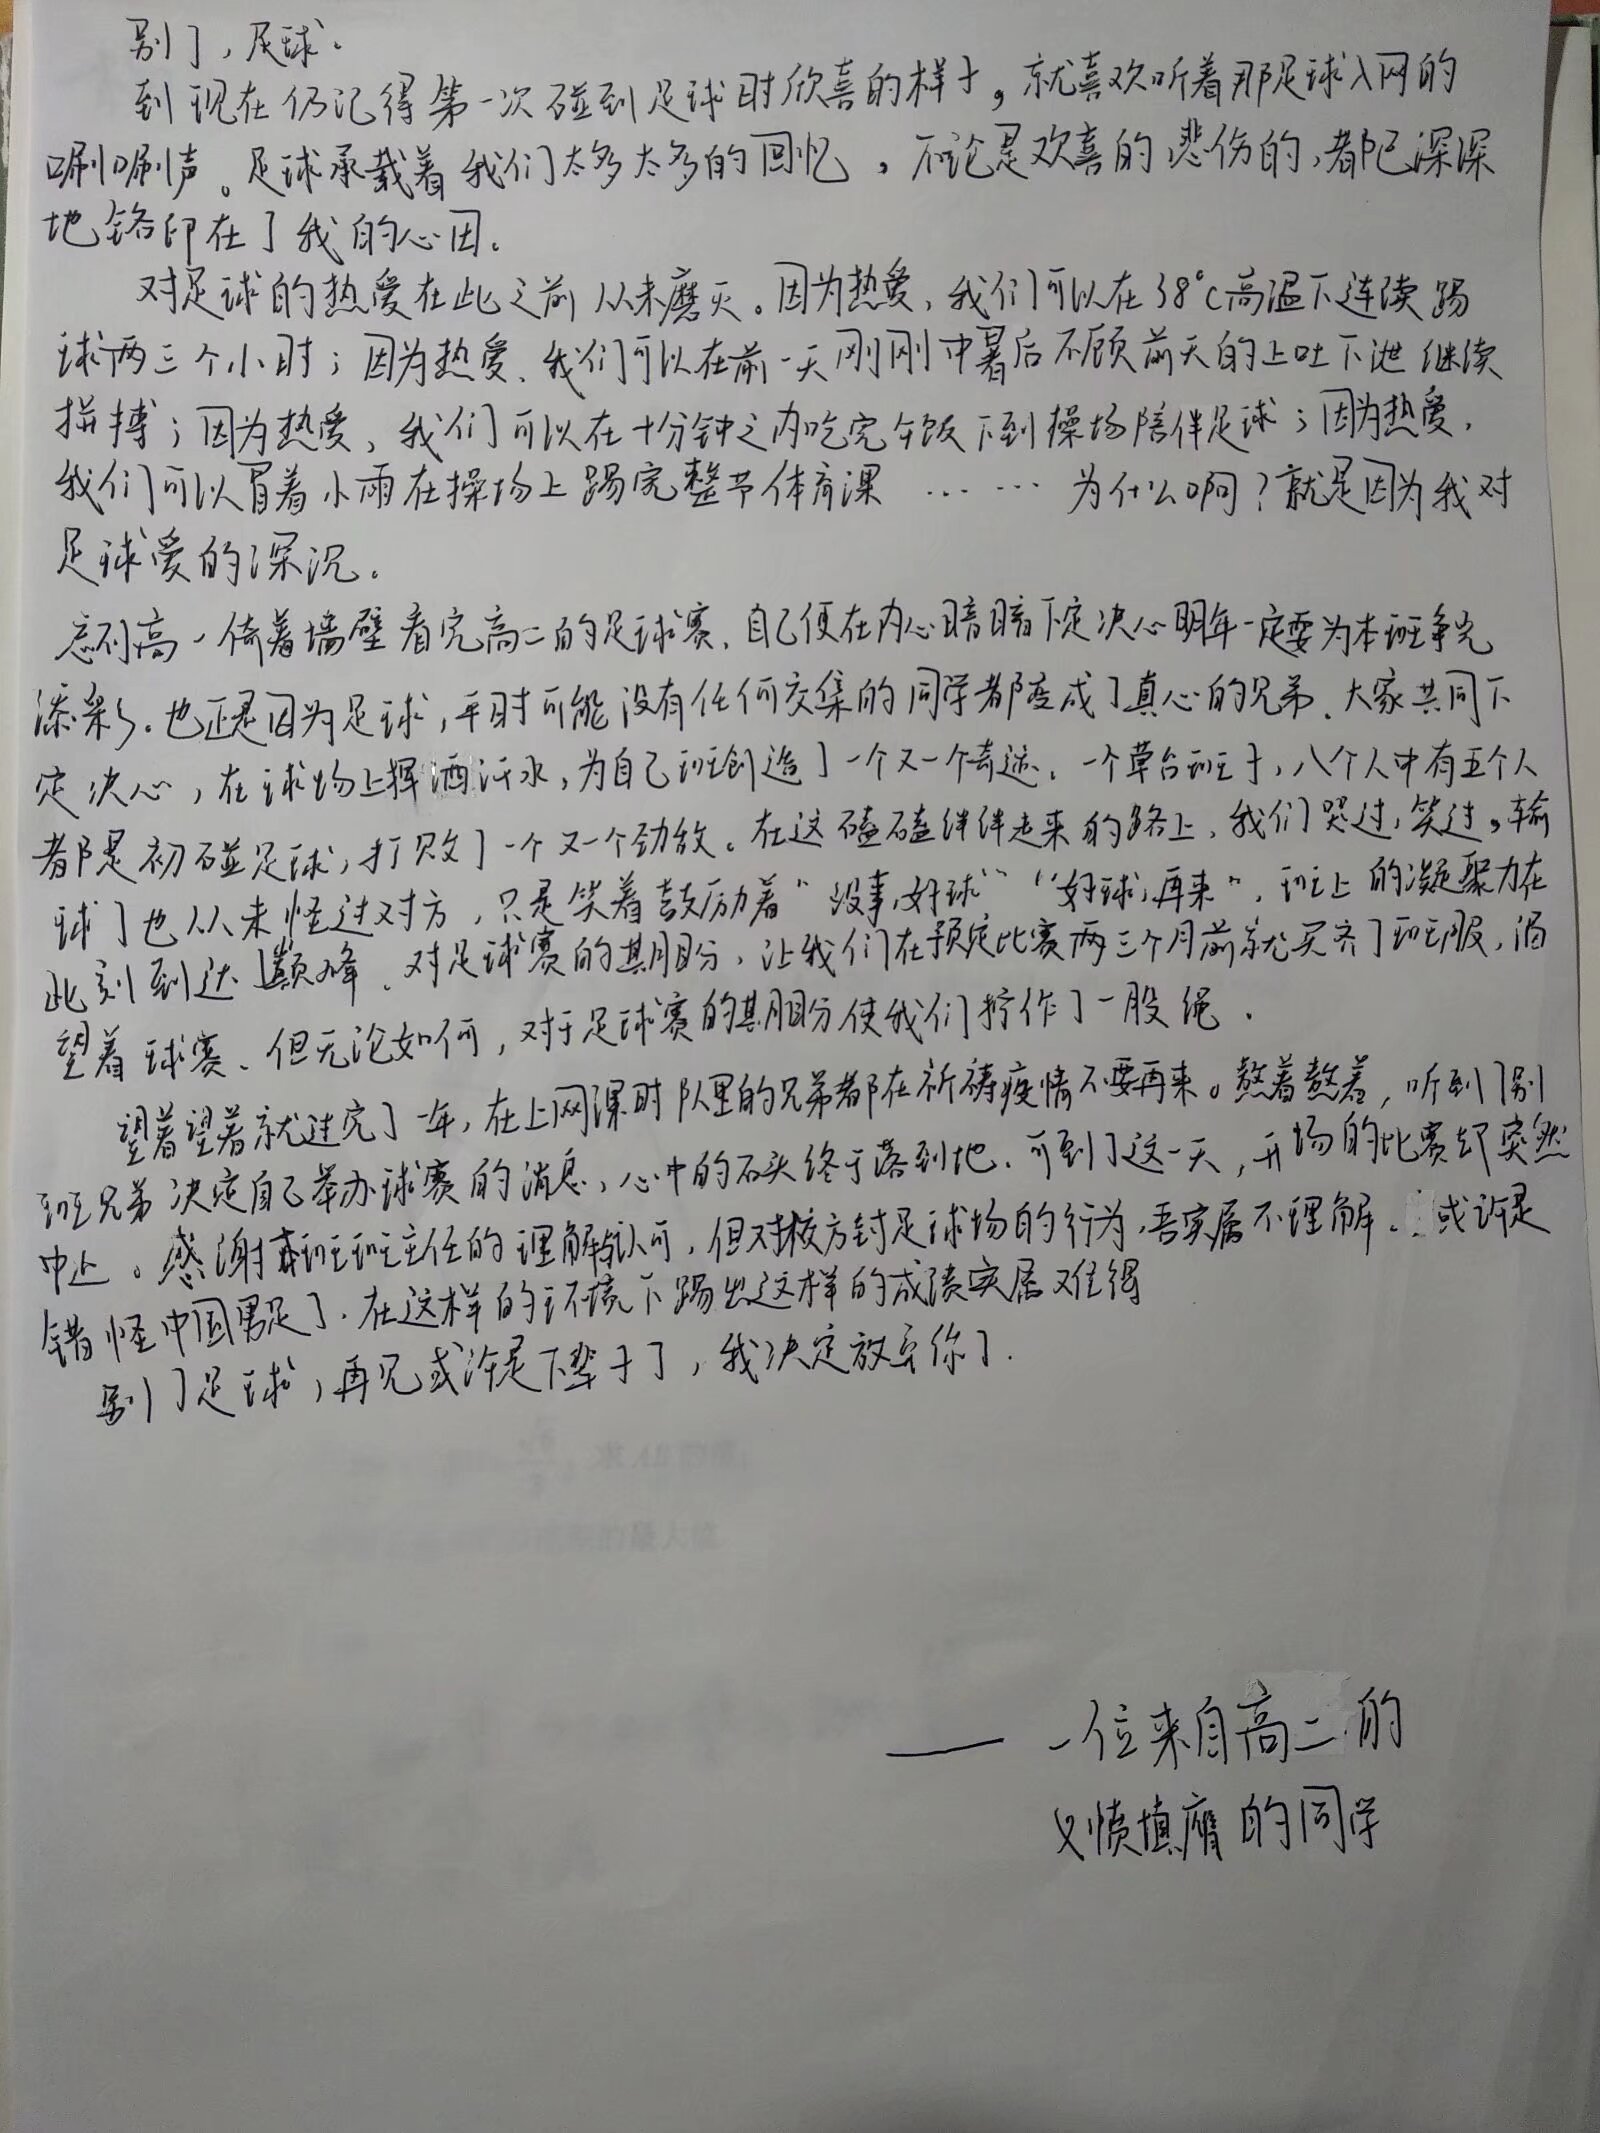 别了，足球。
到现在仍记得第一次碰到足球时欣喜的样子，就喜欢听着那足球入网的
唰唰声。足球承载着我们太多太多的回忆，不论是欢喜的悲伤的，都已深深
地铭印在了我的心田。
对足球的热爱在此之前从未磨灭。因为热爱，我们可以在38°C高温下连续踢
球两三个小时；因为热爱，我们可以在前一天刚刚中暑后不顾前天的上吐下泄继续
拼搏；因为热爱，我们可以在十分钟之内吃完午饭下到操场陪伴足球；因为热爱，
我们可以冒着小雨在操场上踢完整节体育课……为什么啊？就是因为我对
足球爱的深沉。
忘不了高一倚着墙壁看完高二的足球赛，自己便在内心暗暗下定决心明年一定要为本班争光
添彩。也正是因为足球，平时可能没有任何交集的同学都变成了真心的兄弟，大家共同下
定决心，在球场上挥洒汗水，为自己班创造了一个又一个奇迹。一个草台班子，八个人中有五个人
都是初碰足球，打败了一个又一个劲敌。在这磕磕绊绊走来的路上，我们哭过，笑过，输
球了也从未怪过对方，只是笑着鼓励着“没事，好球”“好球，再来”，班上的凝聚力在
此刻到达巅峰，对足球赛的期盼，让我们在预定比赛两三个月前就买齐了班服，渴
望着球赛，但无论如何，对于足球赛的期盼使我们拧作了一股绳。
望着望着就过完了一年，在上网课时队里的兄弟都在祈祷疫情不要再来。熬着熬着，听到了别
班兄弟决定自己举办球赛的消息，心中的石头终于落到地，可到了这一天，开场的比赛却突然
中止。感谢本班班主任的理解与认可，但对校方封足球场的行为，吾实属不理解。或许是
错怪中国男足了，在这样的环境下踢出这样的成绩实属难得
别了足球，再见或许是下辈子了，我决定放弃你了.
—— 一位来自高二的
义愤填膺的同学